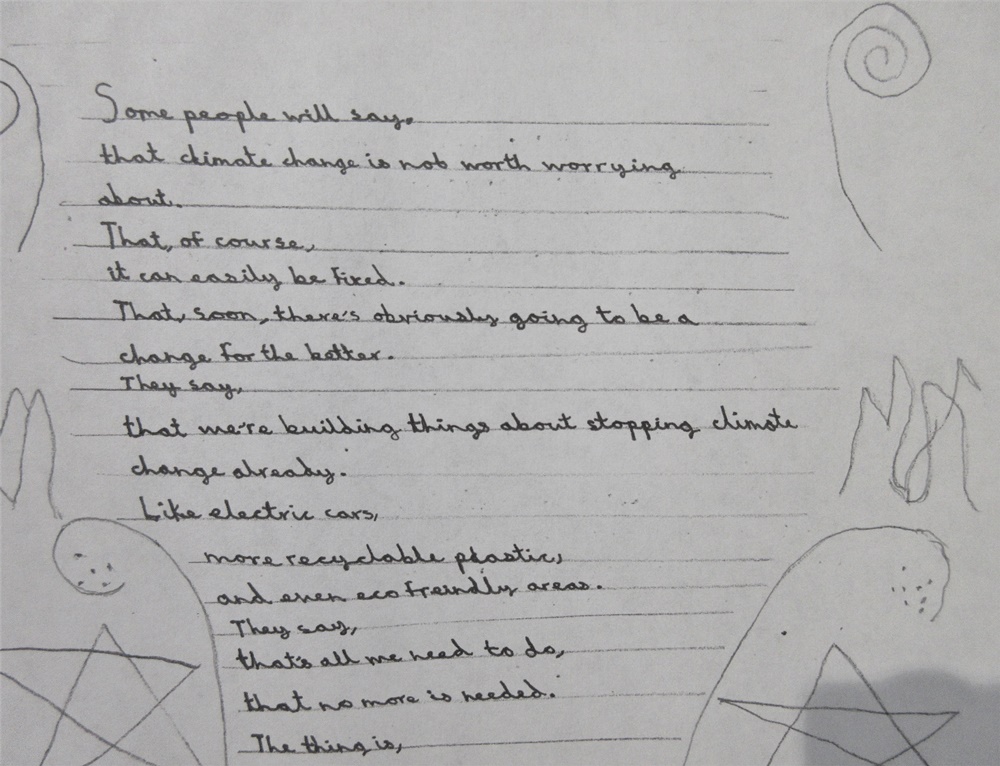 Some people will say,
that climate change is not worth worrying
about.
That, of course,
it can easily be fixed.
That, soon, there's obviously going to be a
change for the better.
They say,
that we're building things about stopping climate
change already.
Like electric cars,
more recyclable plastic,
and even eco freindly areas.
They say,
that's all we need to do,
that no more is needed.
The thing is,